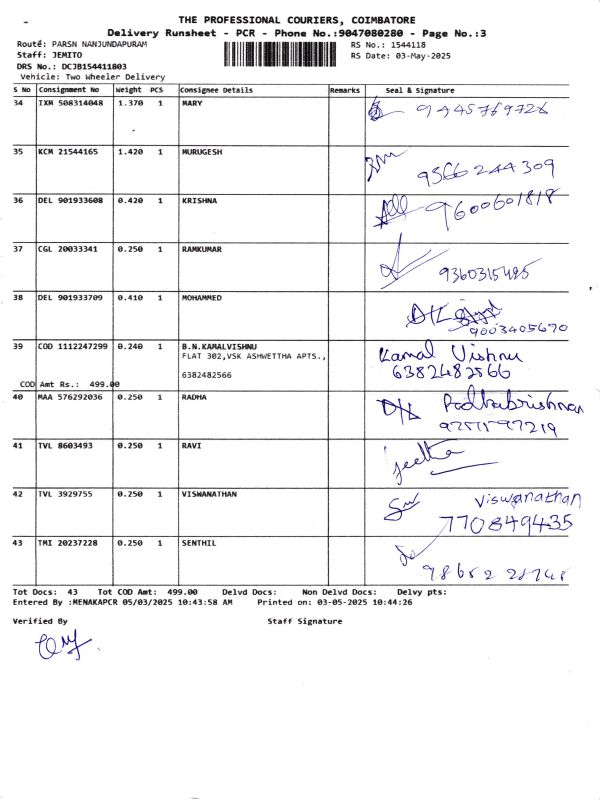 THE PROFESSIONAL COURIERS, COIMBATORE
Delivery Runsheet - PCR - Phone No.:9047080280 - Page No.:3
Route: PARSN NANJUNDAPURAM RS No.: 1544118
Staff: JEMITO RS Date: 03-May-2025
DRS No.: DCJB154411803
Vehicle: Two Wheeler Delivery
S No Consignment No Weight PCS Consignee Details Remarks Seal & Signature
34 IXM 508314048 1.370 1 MARY 9445769726
35 KCM 21544165 1.420 1 MURUGESH
9366244309
36 DEL 901933608 0.420 1 KRISHNA 9600601818
37 CGL 20033341 0.250 1 RAMKUMAR
9360315495
38 DEL 901933709 0.410 1 MOHAMMED
9003405670
39 COD 1112247299 0.240 1 B.N.KAMALVISHNU Kamal Vishnu
FLAT 302,VSK ASHWETTHA APTS.,
6382482566 6382482566
COD Amt Rs.: 499.00
40 MAA 576292036 0.250 1 RADHA D/L Radhakrishnan
41 TVL 8603493 0.250 1 RAVI
Geetha
42 TVL 3929755 0.250 1 VISWANATHAN Viswanathan
770849435
43 TMI 20237228 0.250 1 SENTHIL
Tot Docs: 43 Tot COD Amt: 499.00 Delvd Docs: Non Delvd Docs: Delvy pts:
Entered By :MENAKAPCR 05/03/2025 10:43:58 AM Printed on: 03-05-2025 10:44:26
Verified By Staff Signature